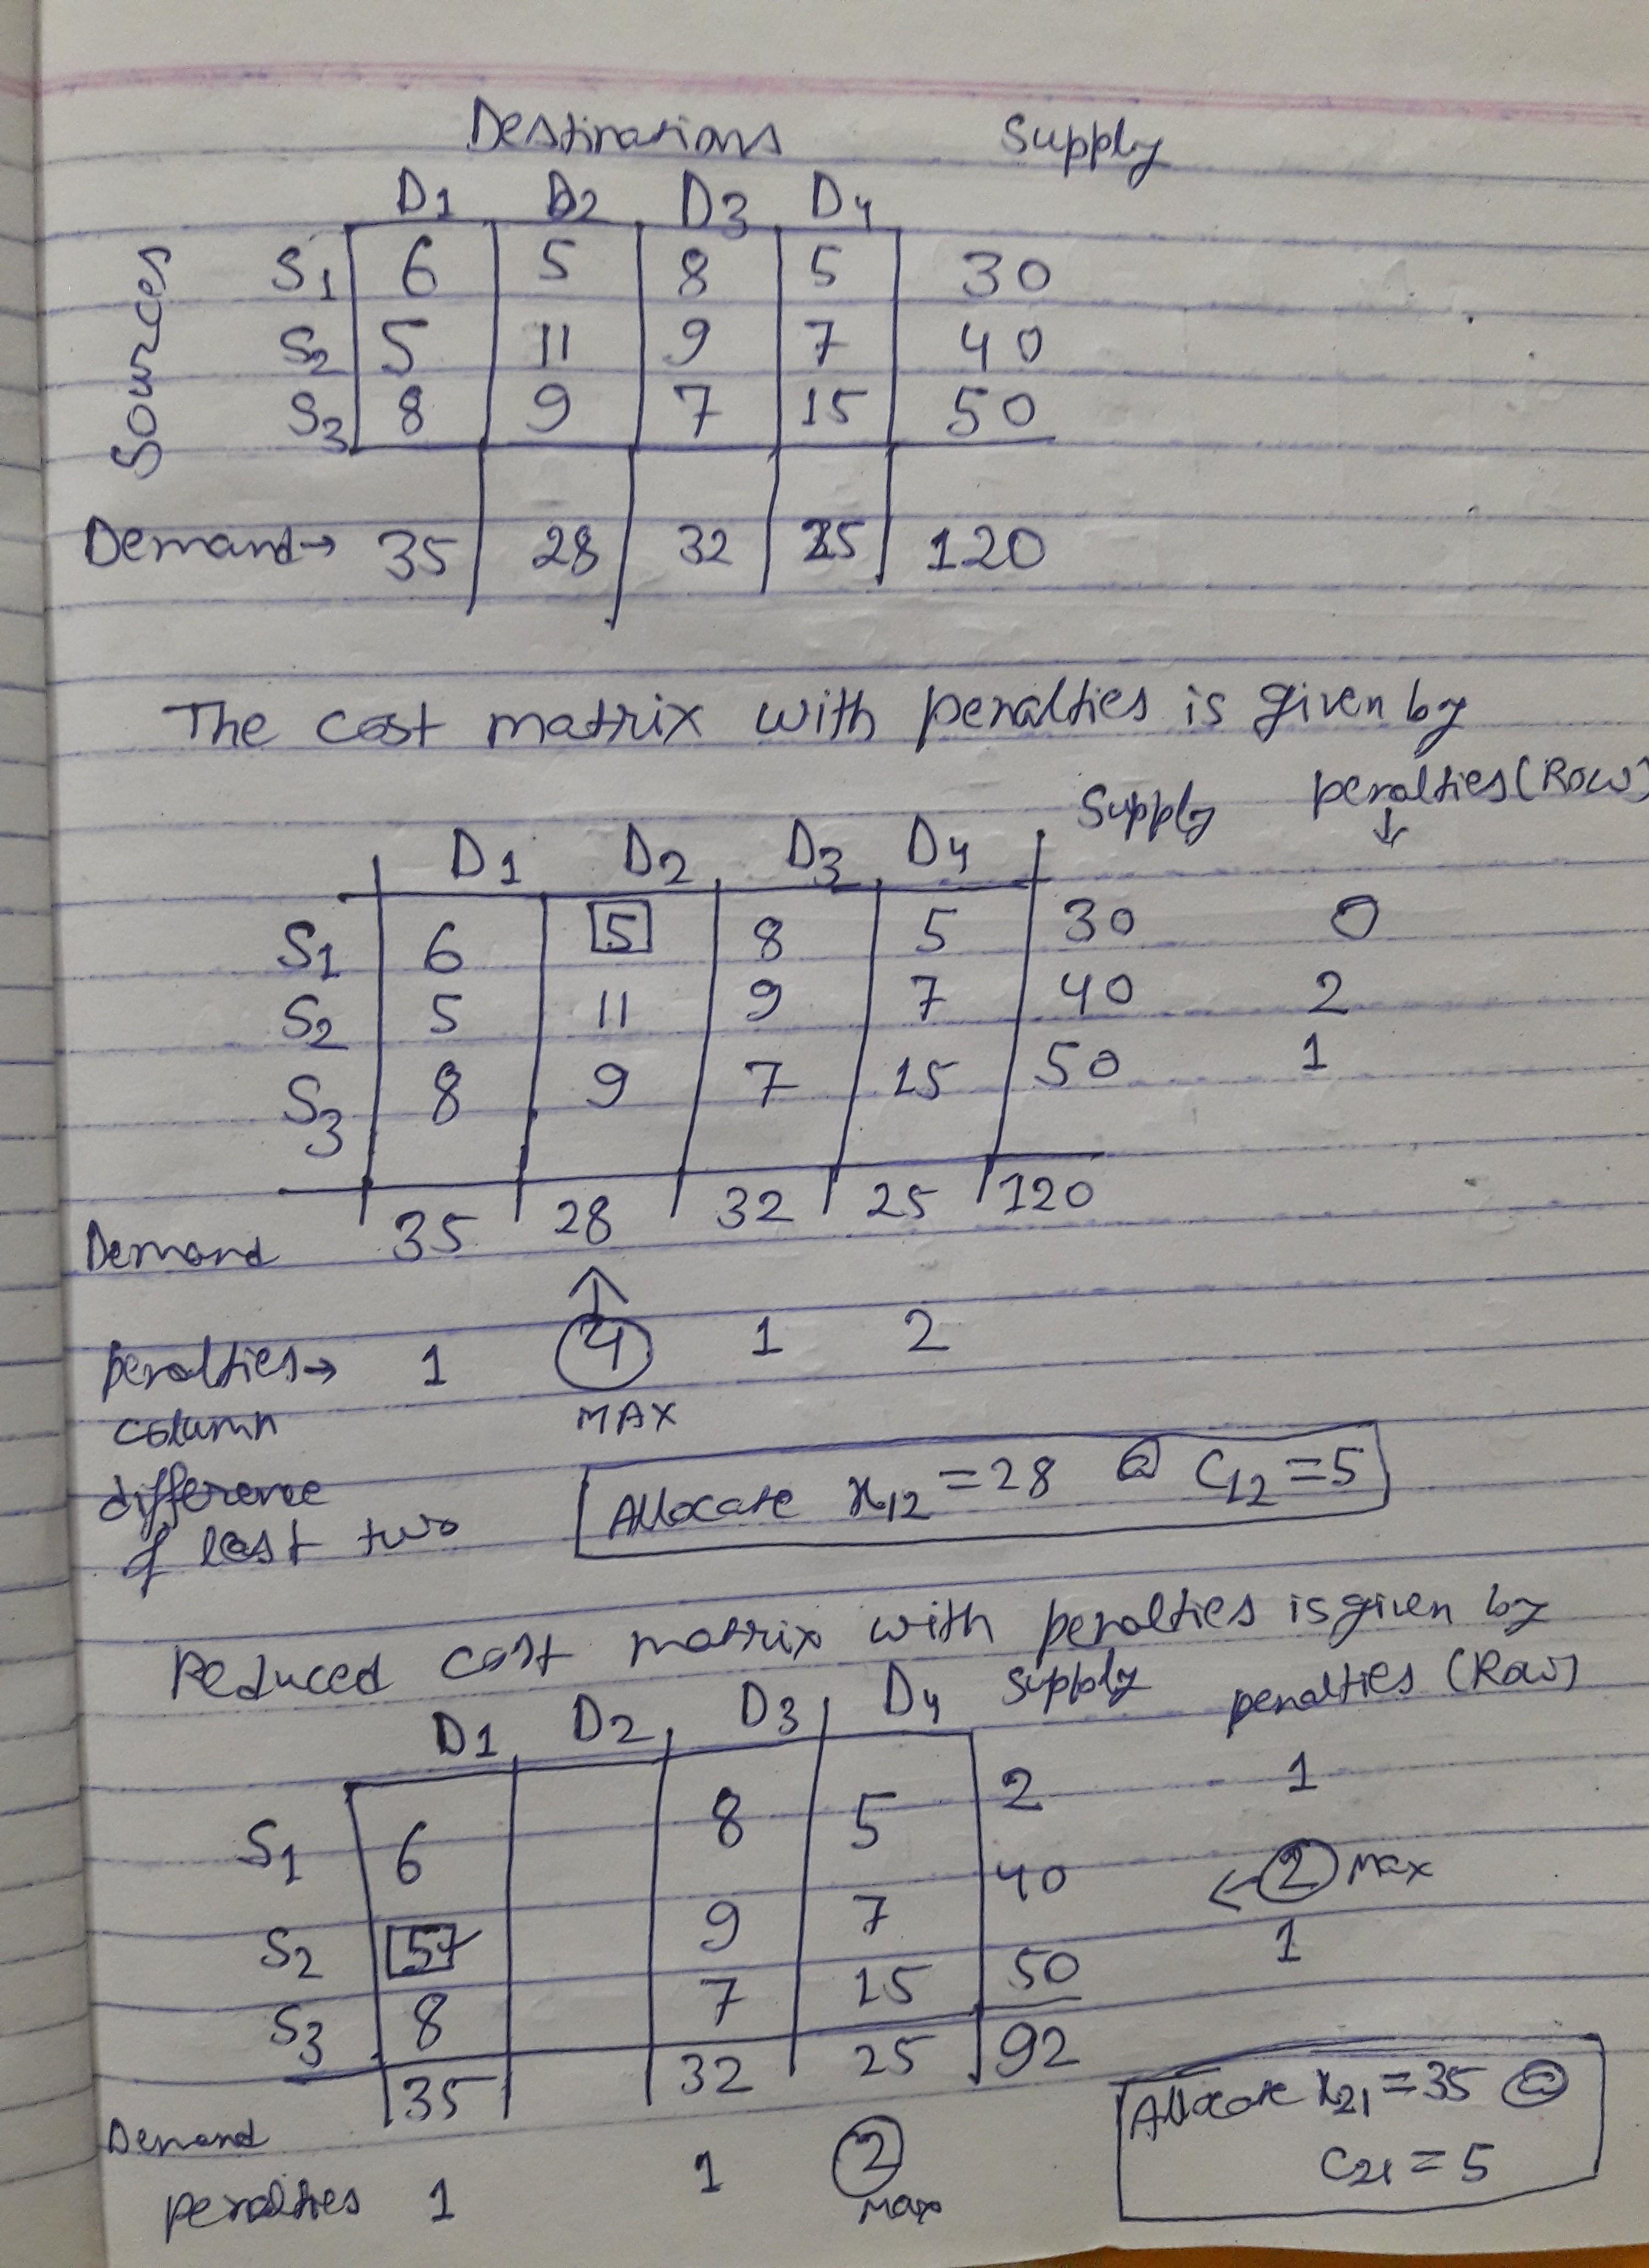 Destinations Supply
D1 D2 D3 D4
Sources
S1 6 5 8 5 30
S2 5 11 9 7 40
S3 8 9 7 15 50
Demand→ 35 28 32 25 120
The cost matrix with penalties is given by
Supply penalties (Row)
↓
D1 D2 D3 D4
S1 6 5 8 5 30 0
S2 5 11 9 7 40 2
S3 8 9 7 15 50 1
Demand 35 28 32 25 120
↑
penalties→ 1 4 1 2
column MAX
difference
of last two
Allocate x12 = 28 @ C12 = 5
Reduced cost matrix with penalties is given by
D1 D2 D3 D4 Supply penalties (Row)
S1 6 8 5 2 1
S2 5 9 7 40 ← 2 Max
S3 8 7 15 50 1
Demand 35 32 25 92
penalties 1 1 2
Max
Allocate x21 = 35 @
C21 = 5